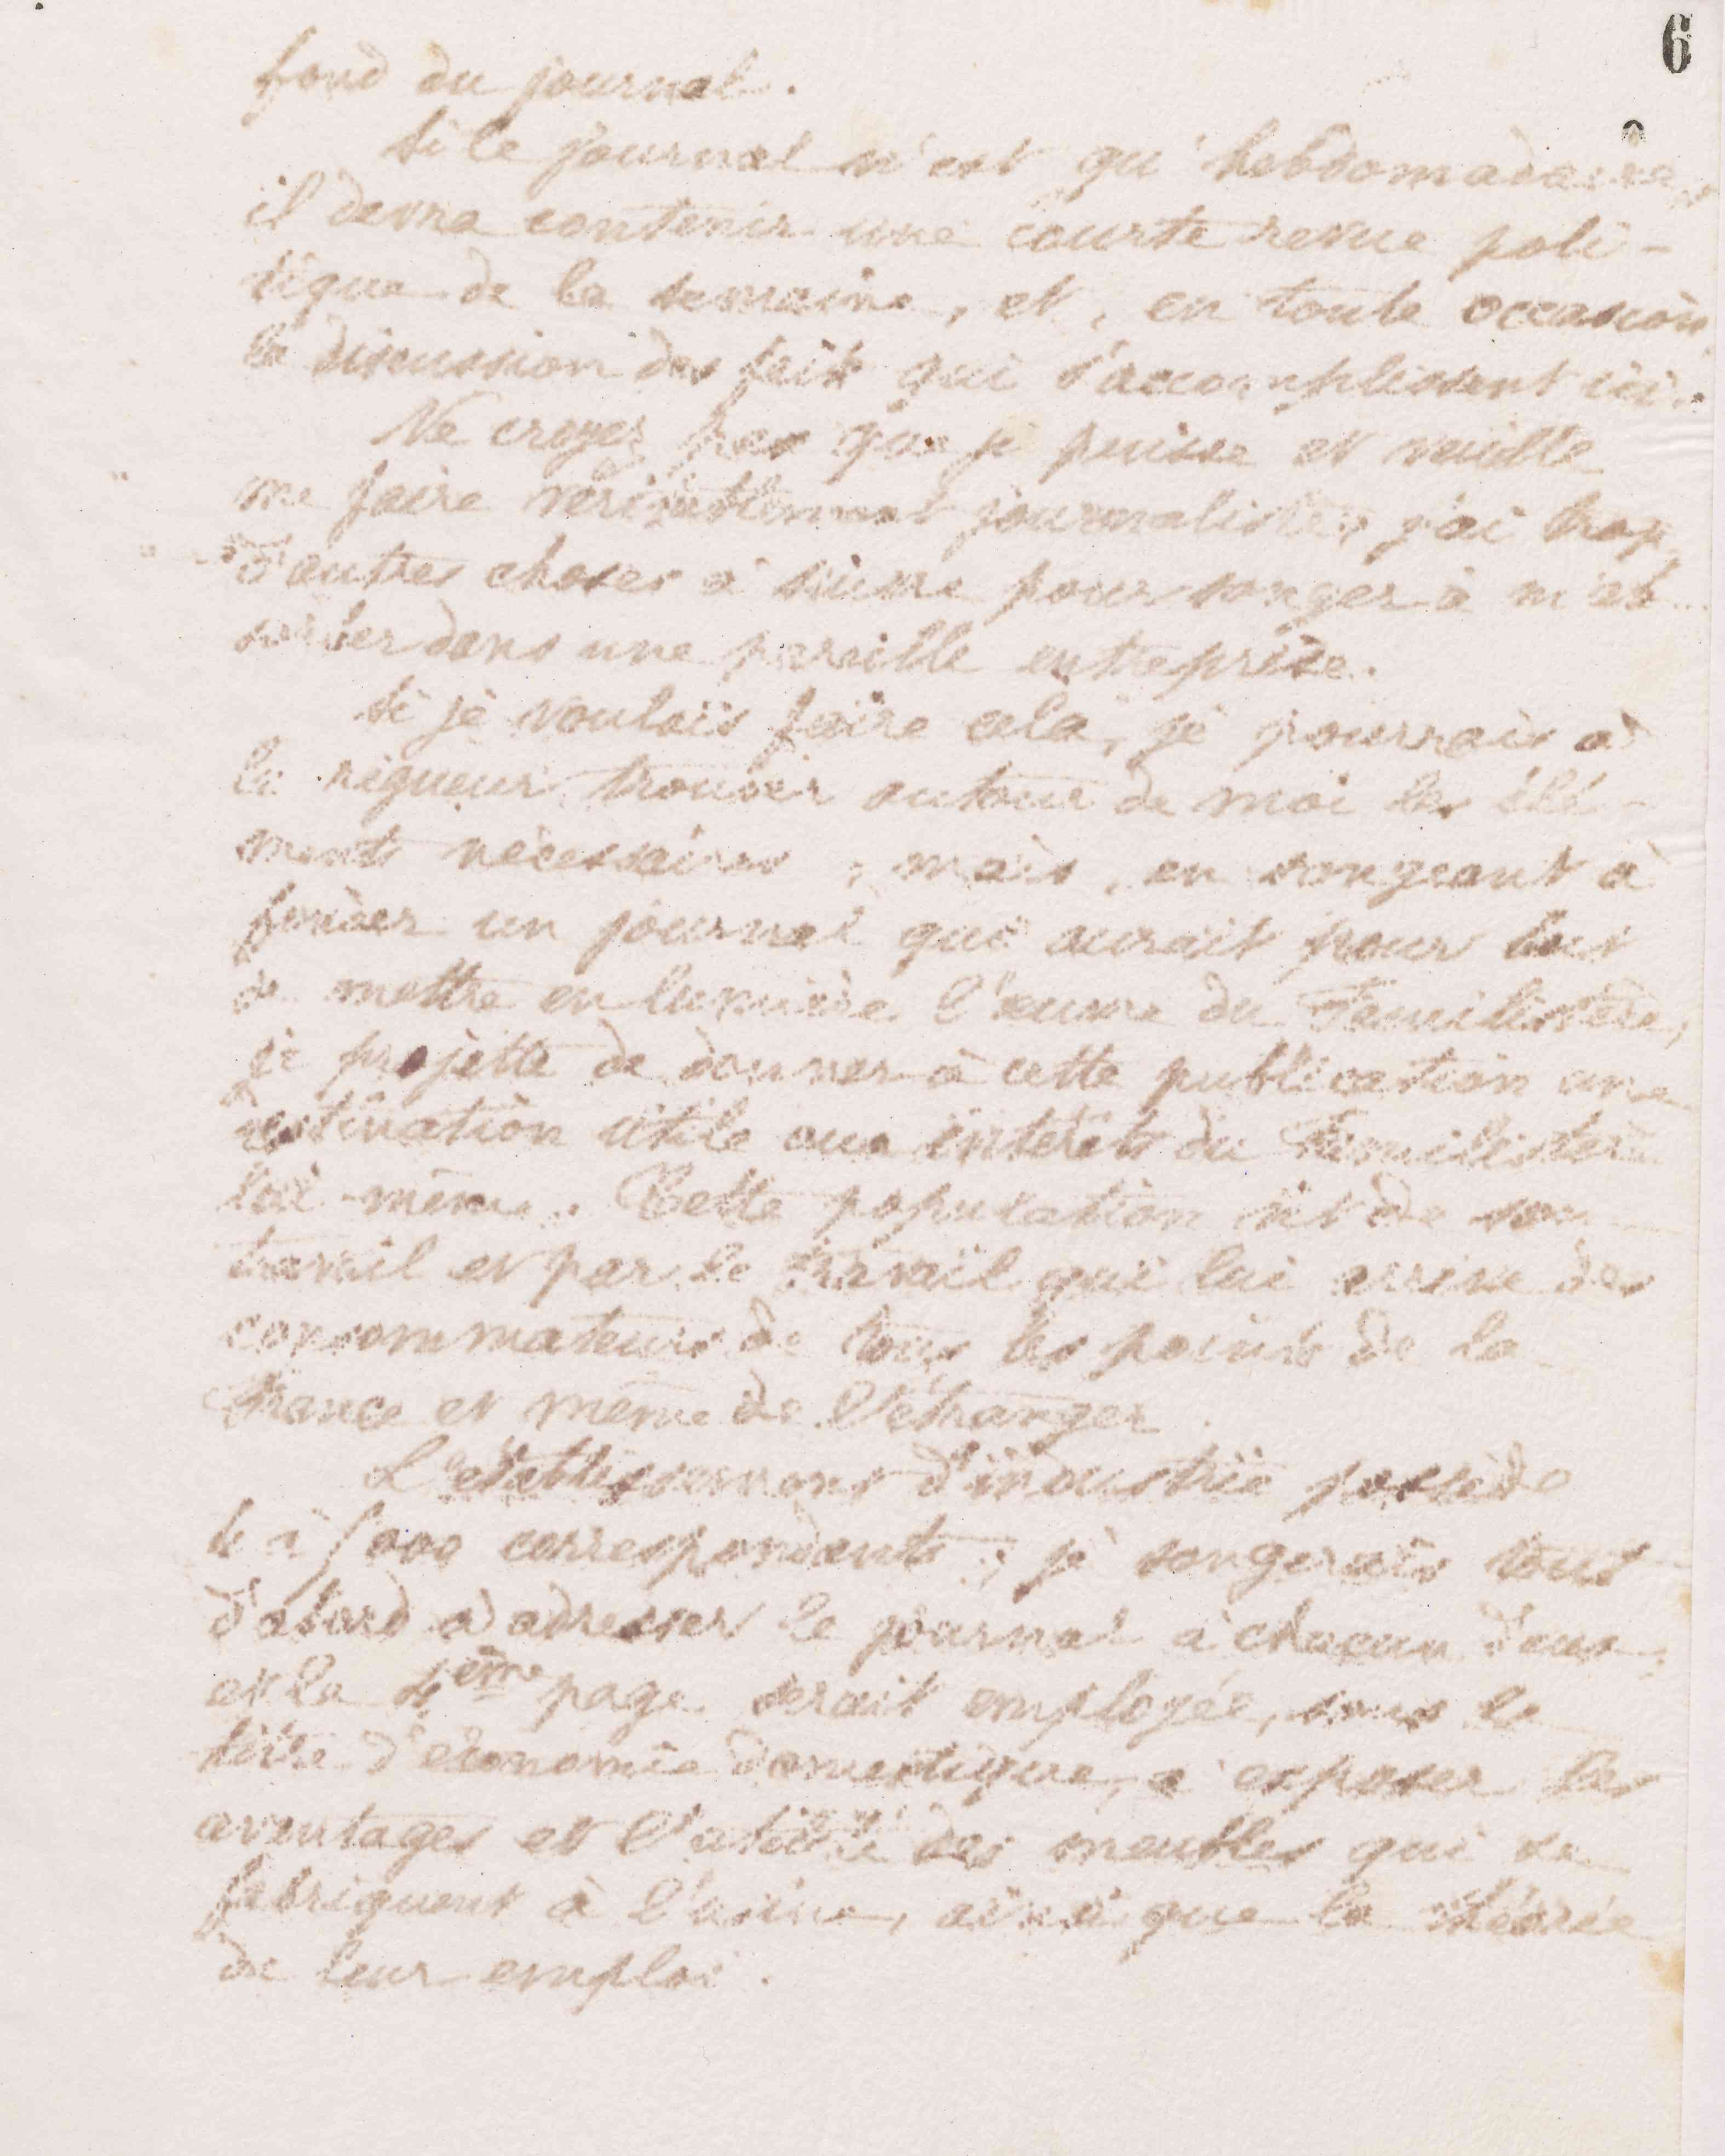 6
fond du journal.
Si le journal n'est qu'hebdomadaire,
il devra contenir une courte revue poli-
tique de la semaine, et, en toute occasion,
la discussion des faits qui s'accomplissent ici.
Ne croyez pas que je puisse et veuille
me faire véritablement journaliste, j'ai trop
d'autres choses à suivre pour songer à m'ab-
sorber dans une pareille entreprise.
Si je voulais faire cela, je pourrais à
la rigueur trouver autour de moi les élé-
ments nécessaires ; mais, en songeant à
fonder un journal qui aurait pour but
de mettre en lumière l'œuvre du Familistère,
je projette de donner à cette publication une
destination utile aux intérêts du Familistère
lui-même. Cette population vit de son
travail et par le travail qui lui arrive des
consommateurs de tous les points de la
France et même de l'étranger.
L'établissement d'industrie possède
4 à 5000 correspondants ; je songerais tout
d'abord à adresser le journal à chacun d'eux ;
et la 4ème page serait employée, sous le
titre d'économie domestique, à exposer les
avantages et l'utilité des meubles qui se
fabriquent à l'usine, ainsi que la théorie
de leur emploi.